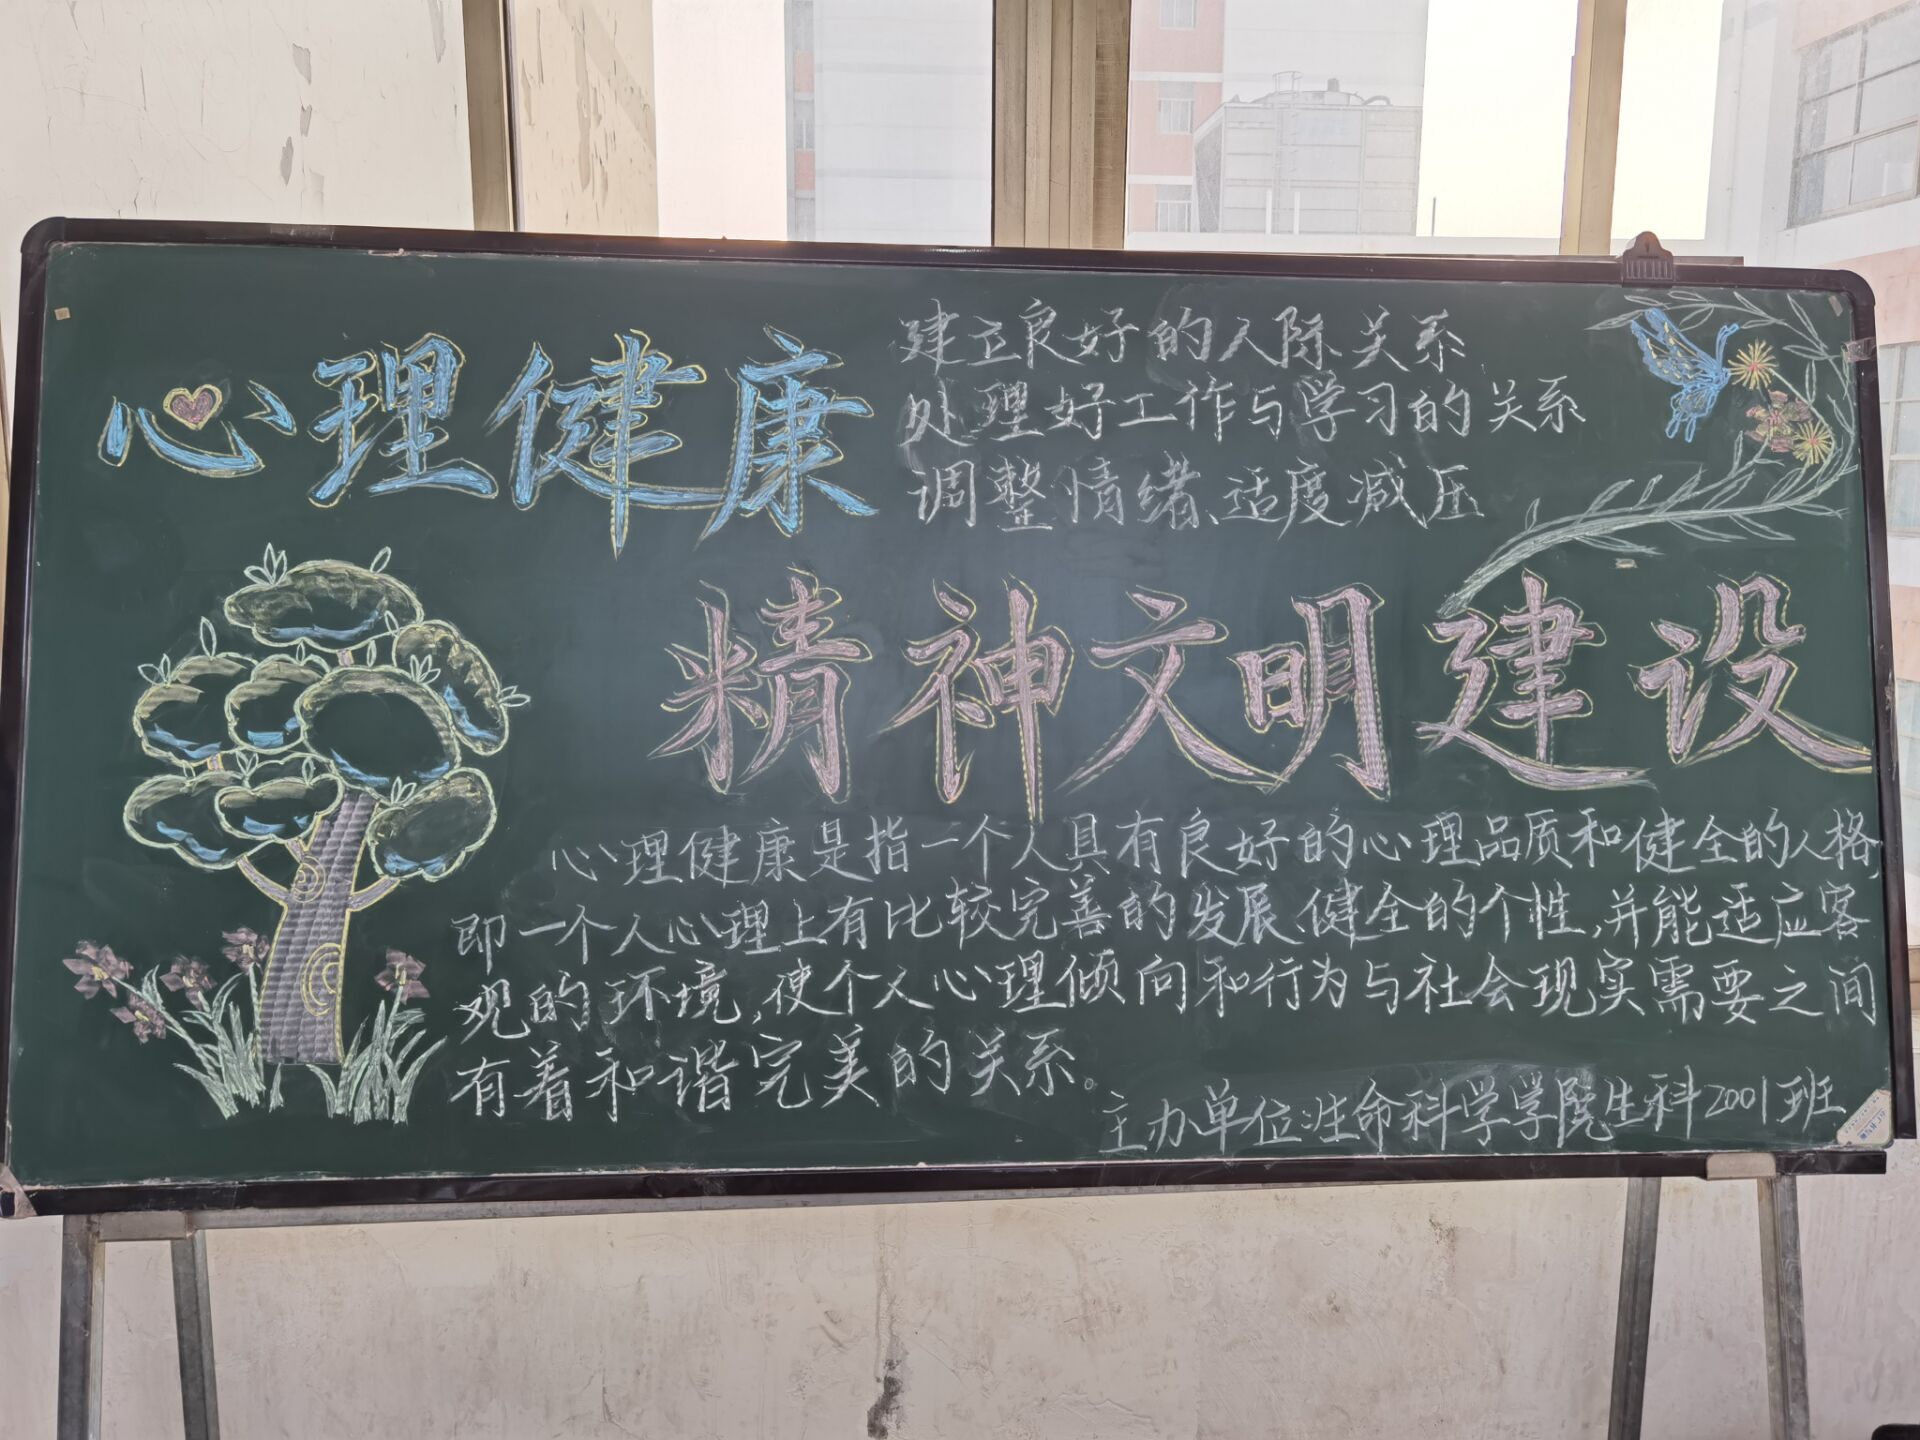 心理健康
建立良好的人际关系
处理好工作与学习的关系
调整情绪、适度减压
精神文明建设
心理健康是指一个人具有良好的心理品质和健全的人格,
即一个人心理上有比较完善的发展、健全的个性,并能适应客
观的环境,使个人心理倾向和行为与社会现实需要之间
有着和谐完美的关系。
主办单位:生命科学学院生科2001班